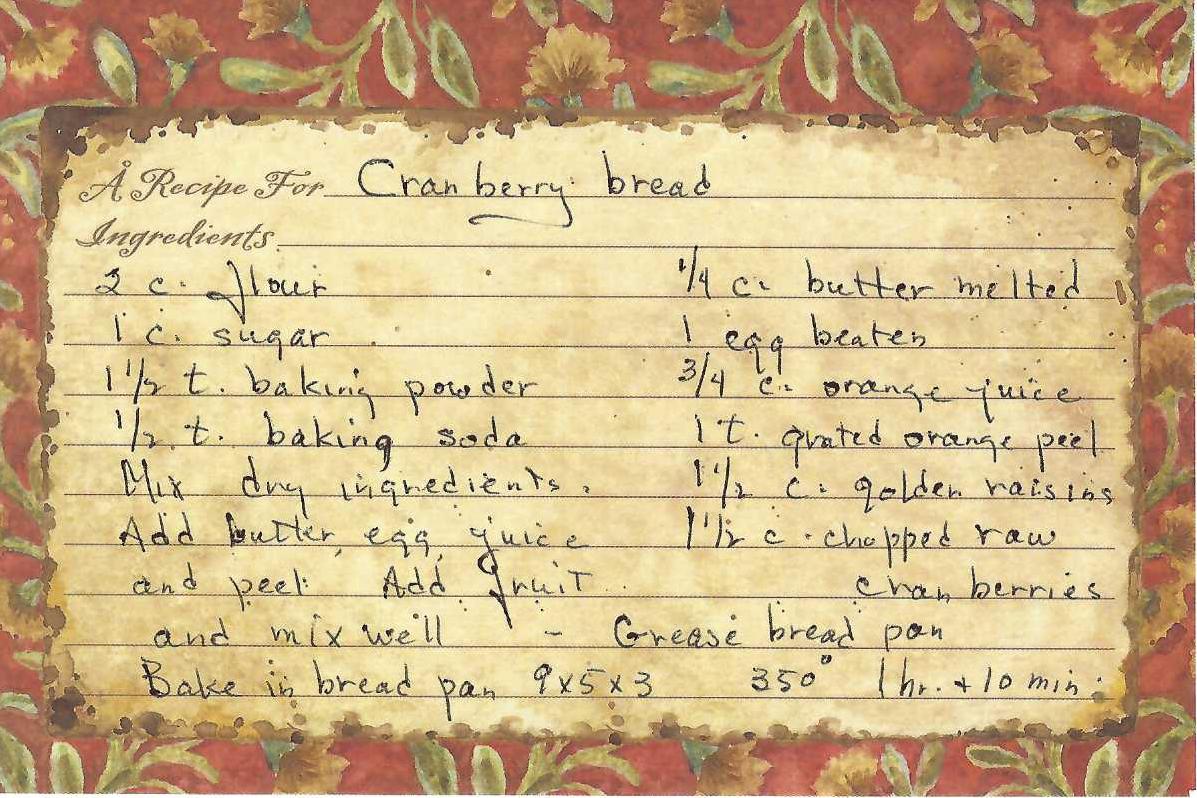 A Recipe For Cranberry bread
Ingredients
2 c. flour 1/4 c. butter melted
1 c. sugar 1 egg beaten
1 1/2 t. baking powder 3/4 c. orange juice
1/2 t. baking soda 1 t. grated orange peel
Mix dry ingredients. 1 1/2 c. golden raisins
Add butter, egg, juice 1 1/2 c. chopped raw
and peel. Add fruit cranberries
and mix well - Grease bread pan
Bake in bread pan 9x5x3 350° 1 hr. + 10 min.